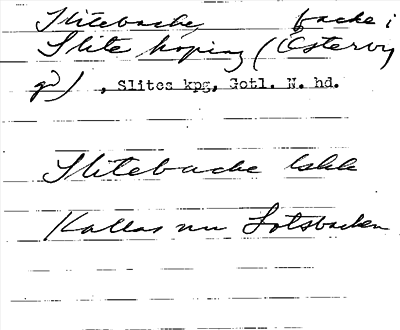 Slitebacke, backe i
Slite köping (Österby
gd) , Slites kpg, Gotl. N. hd.
Slitebacke Iskk
Kallas nu Lotsbacken